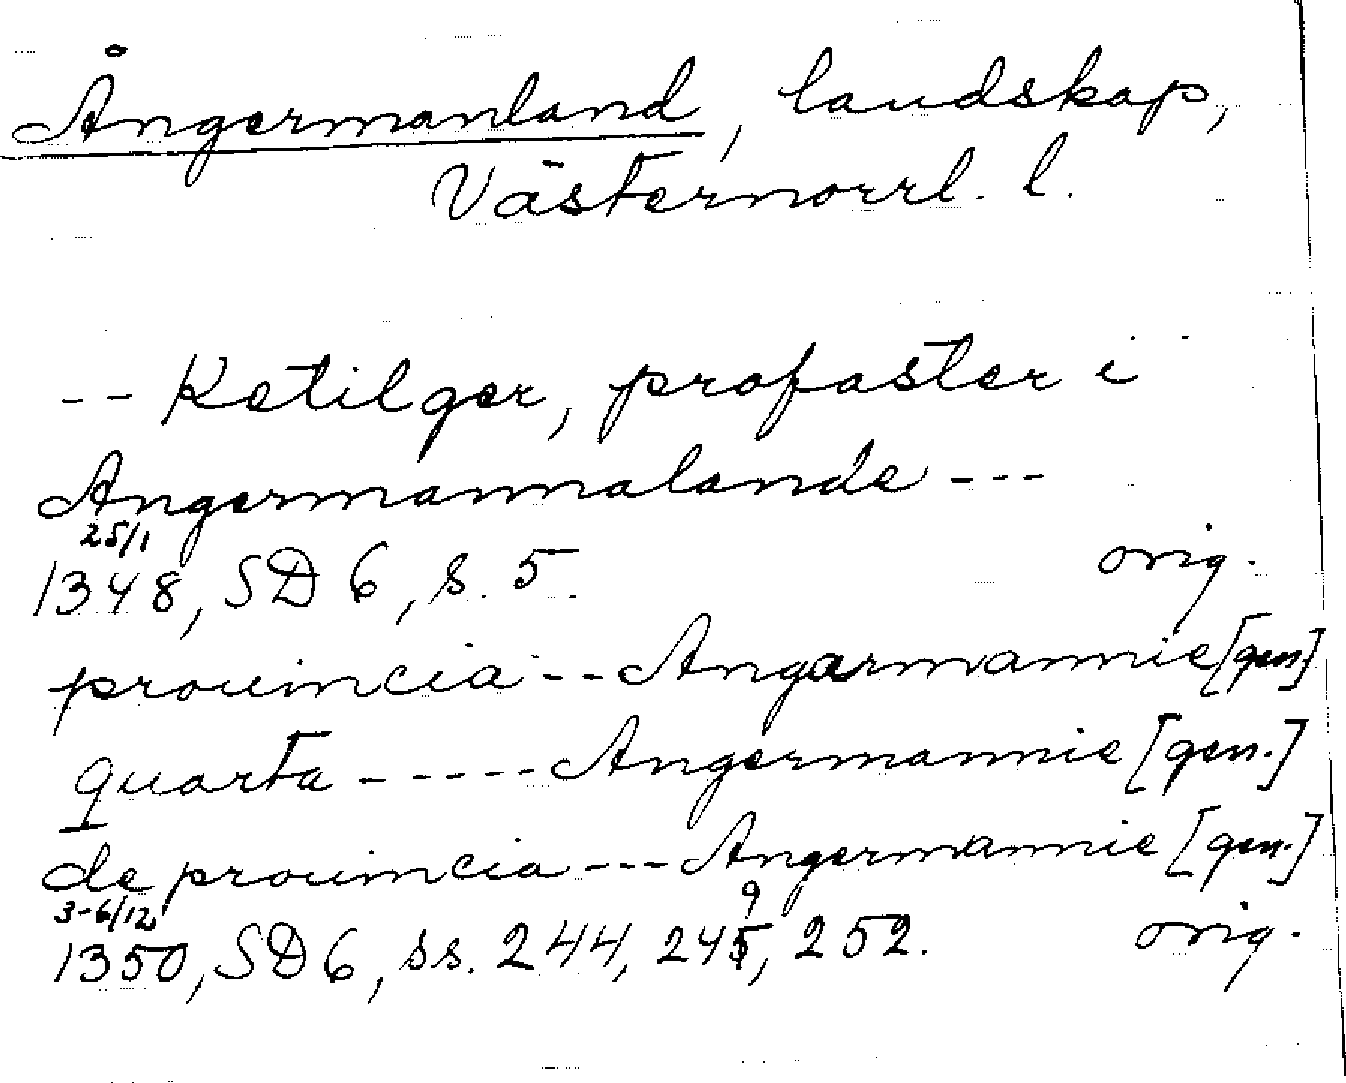 Ångermanland, landskap,
Västernorrl. l.
-- Ketilger, profaster i
Angermannalande ---
25/1
1348, SD 6, s. 5. orig.
prouincia --- Angarmannie [gen]
quarta ----- Angermannie [gen.]
de prouincia --- Angermannie [gen.]
3-6/12 9
1350, SD 6, ss. 244, 245, 252. orig.